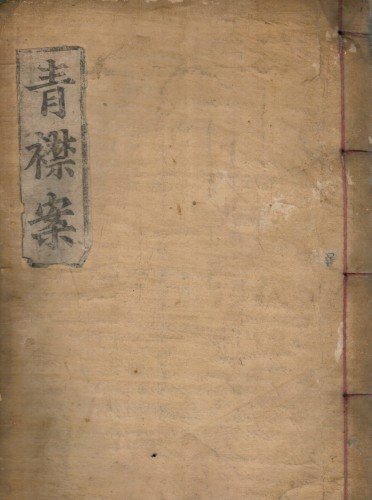 青襟案